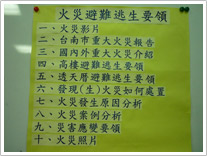 火災避難逃生要領
一、火災影片
二、台南市重大火災報告
三、國內外重大火災介紹
四、高樓避難逃生要領
五、透天厝避難逃生要領
六、發現(生)火災如何處置
七、火災發生原因分析
八、火災案例分析
九、災害應變要領
十、火災照片